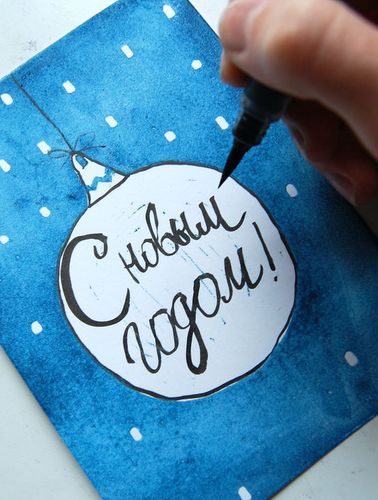 С новым
годом!